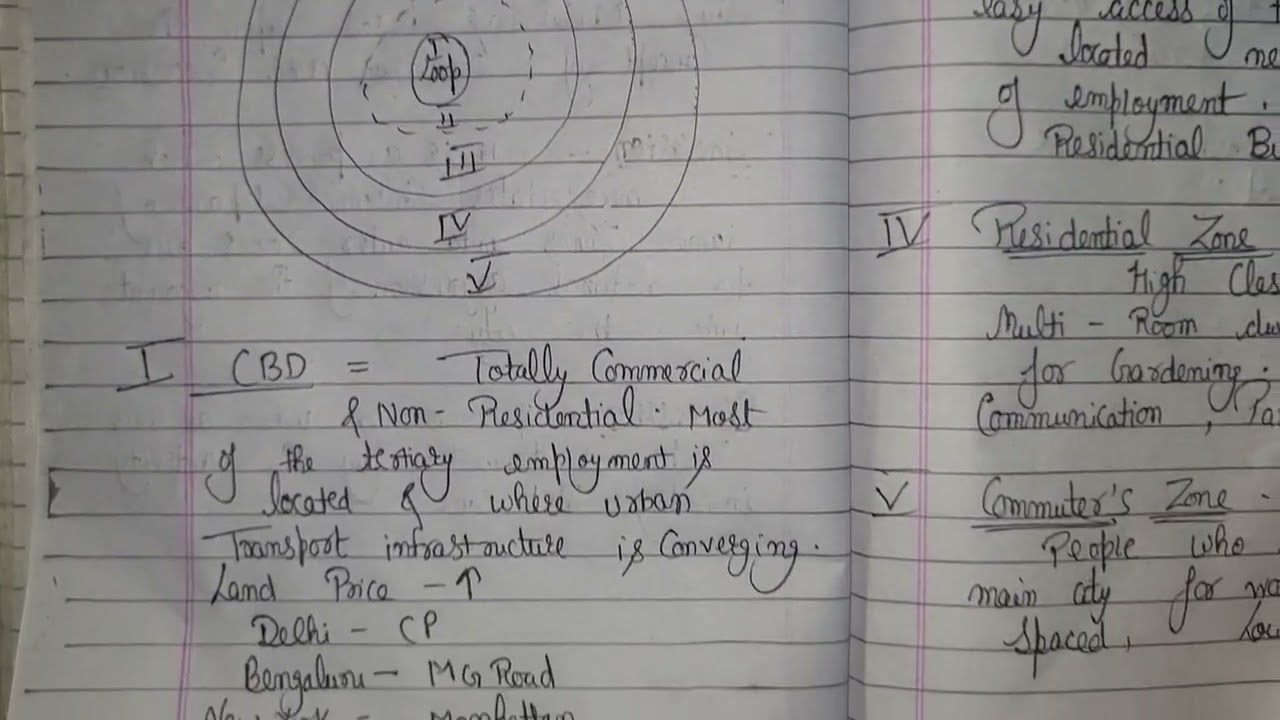 I
Loop
II
III
IV
V
I CBD = Totally Commercial
& Non-Residential. Most
of the tertiary employment is
located & where urban
Transport infrastructure is Converging.
Land Price - ↑
Delhi - CP
Bengaluru - MG Road
Manhattan
easy access of
located
of employment.
Residential
IV Residential Zone
High
Multi - Room
for Gardening.
Communication,
V Commuter's Zone -
People who
main city for
Spaced,